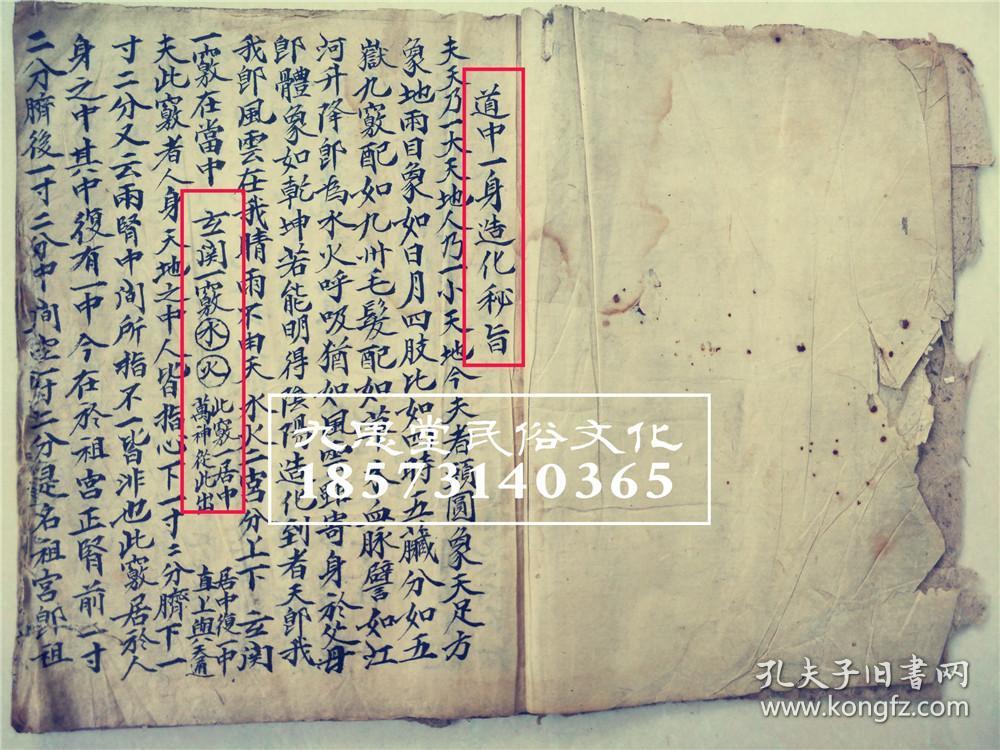 道中一身造化秘旨
夫天乃一大天地人乃一小天地今夫者頭圓象天足方
象地兩目象如日月四肢比如四時五臟分如五
嶽九竅配如九州毛髮配如萬 血脉譬如江
河升降即為水火呼吸猶如風雲 寄身於父母
即體象如乾坤若能明得陰陽造化到者天即我
我即風雲在我晴雨不由天 水火二宮分上下 玄関
一竅在當中
玄関一竅水火 此竅一居中 萬神從此出 居中復一中 直上與天通
夫此竅者人身天地之中人皆指心下一寸二分臍下一
寸二分又云兩腎中间所指不一皆非也此竅居於人
身之中其中復有一中今在於祖宮正腎前一寸
二分臍後一寸二分中间空一寸二分是名祖宮即祖
大惠堂民俗文化
18573140365
孔夫子旧書网
www.kongfz.com